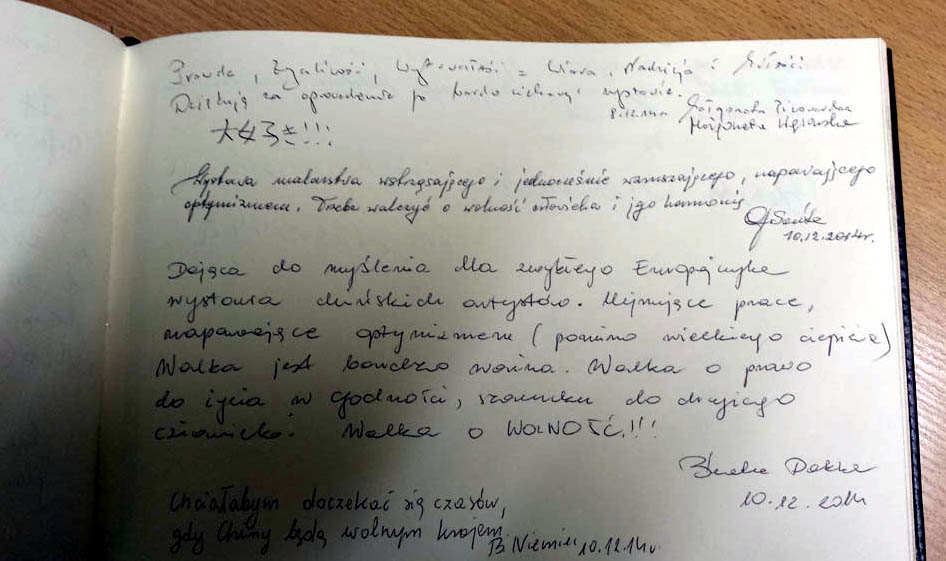 Prawda, Życzliwość, Wytrwałość = Wiara, Nadzieja i Miłości
Dziękuję za oprowadzenie po bardzo ciekawej wystawie.
8.12.14r. Małgorzata
Małgorzata
大女子!!!
Wystawa malarstwa wstrząsającego i jednocześnie wzruszającego, napawającego
optymizmem. Trzeba walczyć o wolność człowieka i jego harmonię
10.12.2014r.
Dająca do myślenia dla zwykłego Europejczyka
wystawa chińskich artystów. Ujmujące prace,
napawające optymizmem (pomimo wielkiego cierpienia)
Walka jest bardzo ważna. Walka o prawo
do życia w godności, szacunku do drugiego
człowieka. Walka o WOLNOŚĆ!!!
10.12.2014
Chciałabym doczekać się czasów,
gdy Chiny będą wolnym krajem.
B Niemiec 10.12.14r.